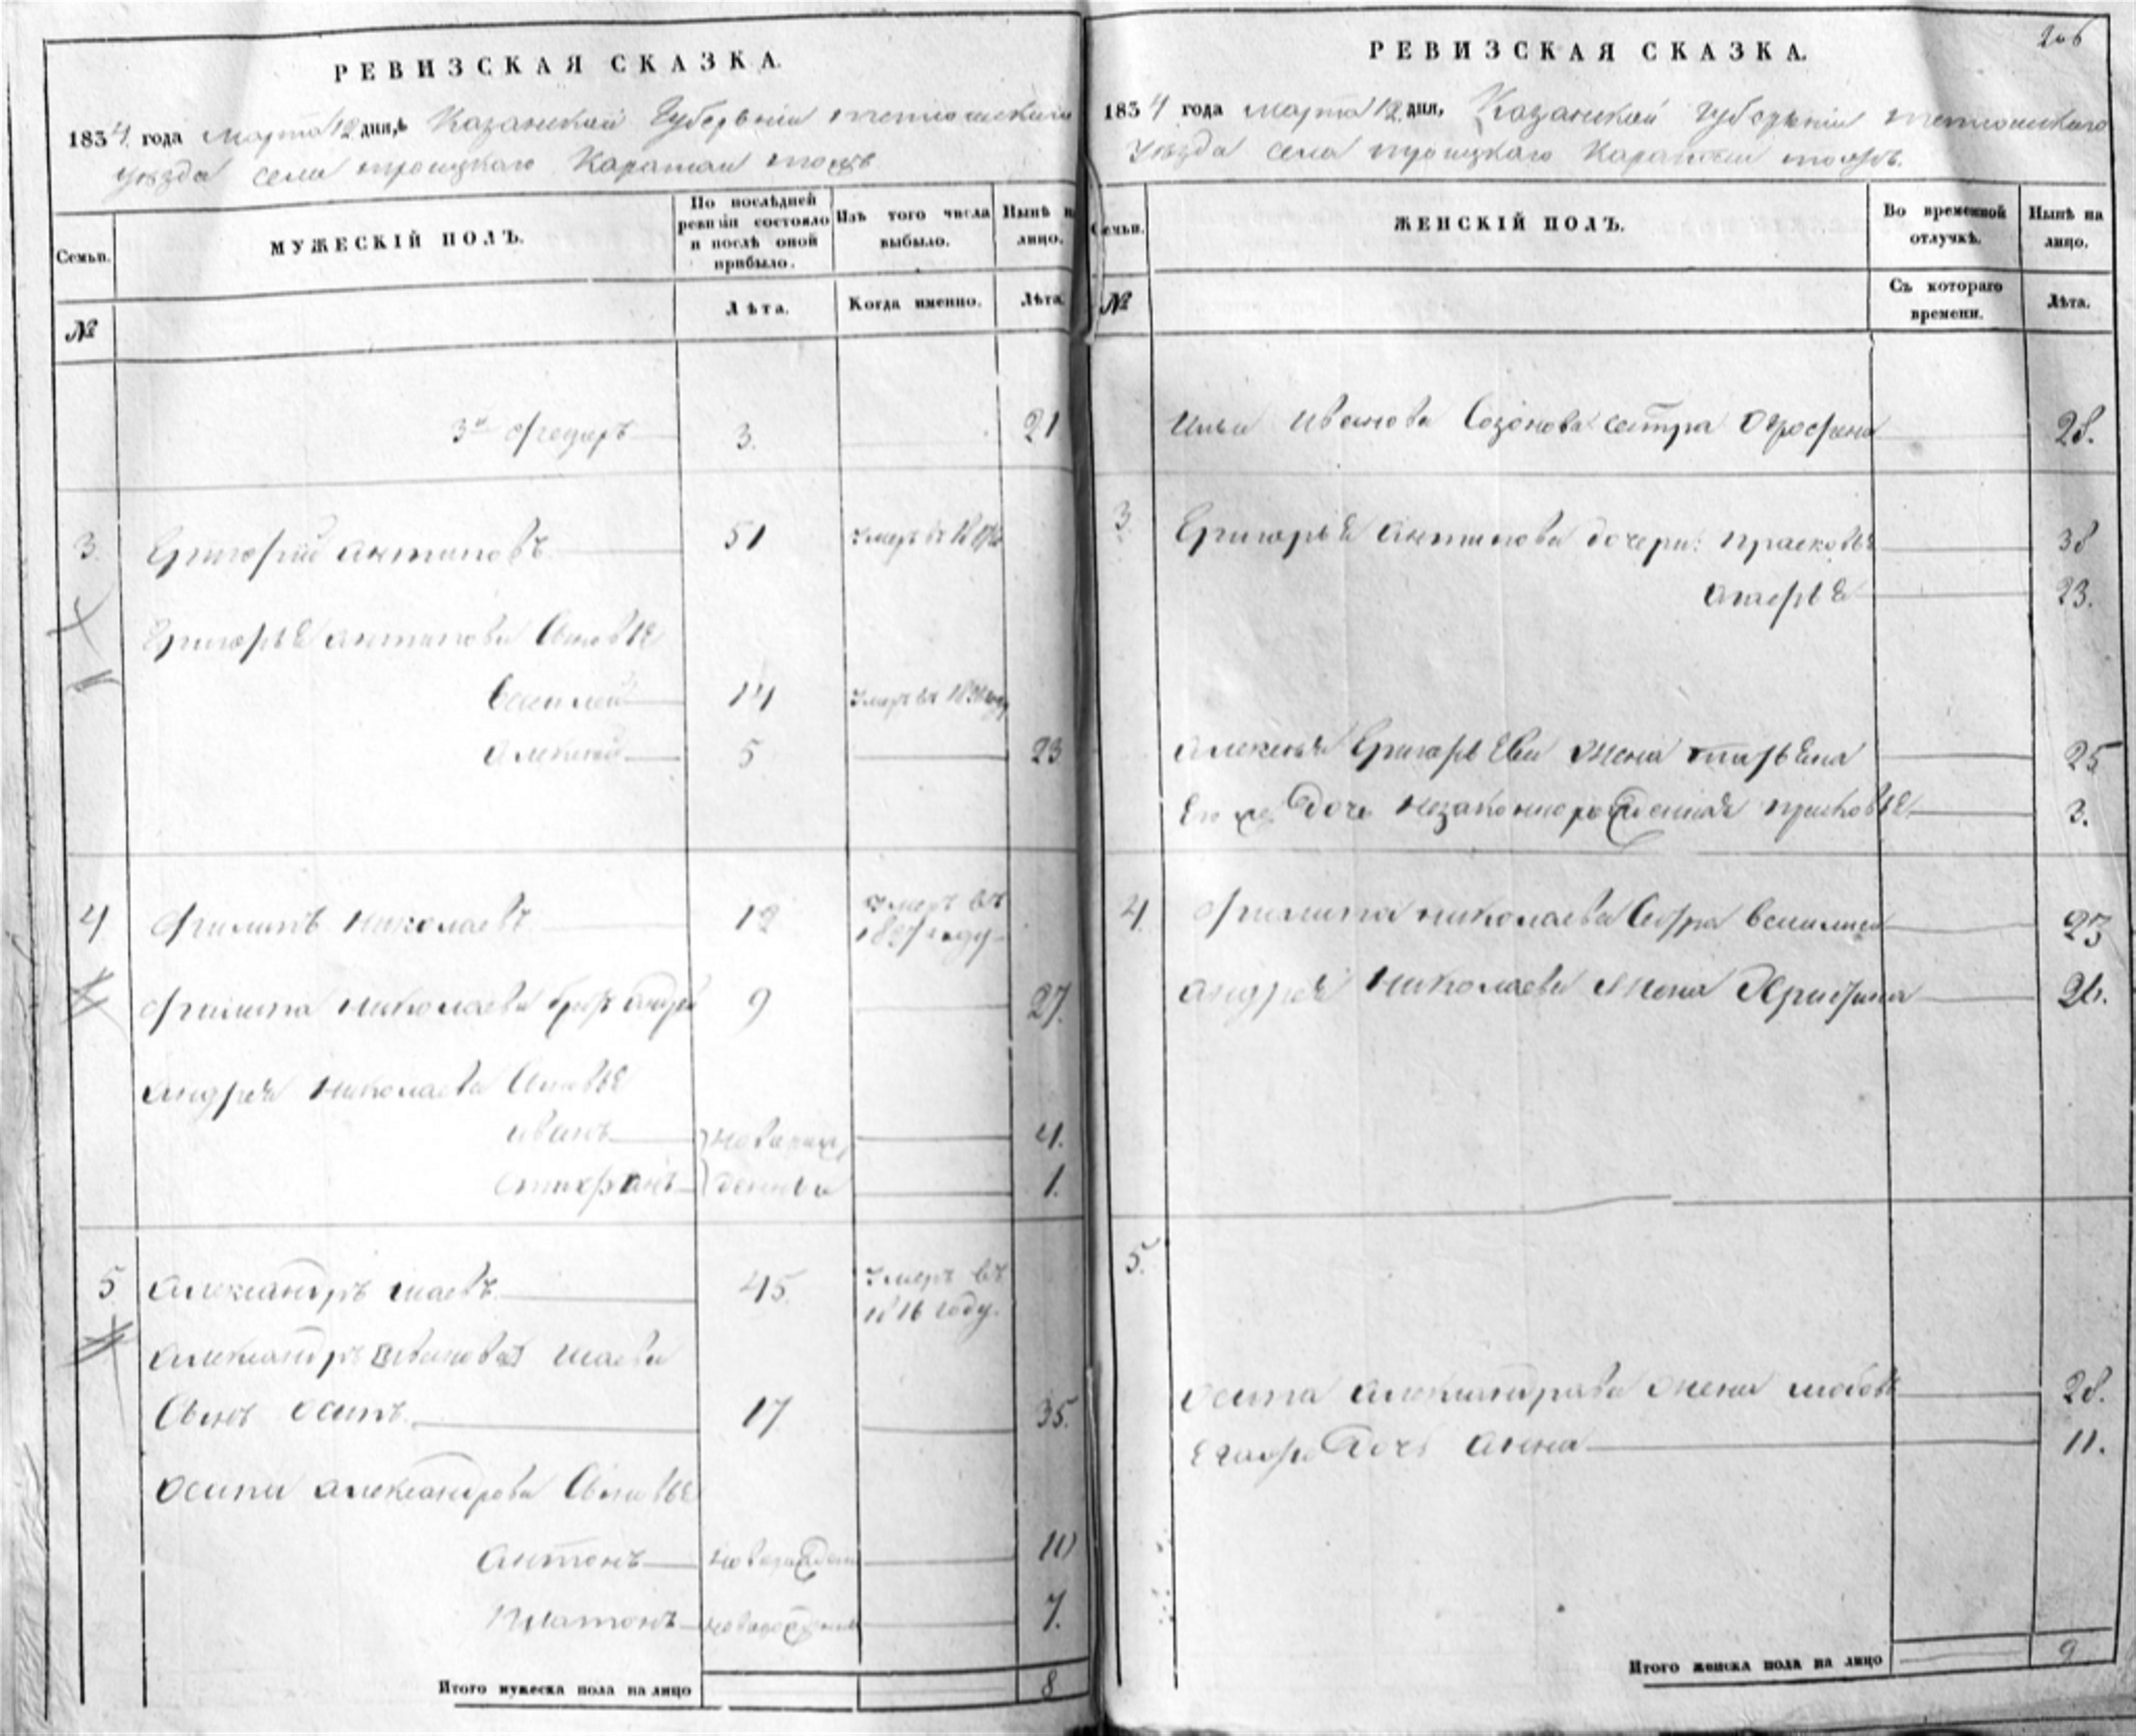 РЕВИЗСКАЯ СКАЗКА.
1834 года Марта 12 дня, Казанской Губернiи тетюшскаго
уезда села троицкаго Каратаи тожъ
Семьи.
МУЖЕСКІЙ ПОЛЪ.
По послѣдней ревизіи состояло и послѣ оной прибыло.
Изъ того числа выбыло.
Нынѣ на лицо.
№
Лѣта.
Когда именно.
Лѣта.
3й Федоръ 3. 21
3. Григорий антиповъ 51 умеръ въ
Григорья антипова Сыновья
Василей 14 умеръ въ
Алексей 5 23
4 Филипъ николаевъ 12 умеръ въ
году
Филипа николаева братъ андрей 9 27.
Андрея николаева Сыновья
иванъ новорож 4.
денныи 1.
5 Александръ исаевъ 45. умеръ въ
1816 году.
Александръ исаева
Сынъ осипъ 17 35.
осипа александрова Сыновья
Антонъ новорожден 10
Платонъ новорожден 7.
Итого мужеска пола на лицо 8
206
РЕВИЗСКАЯ СКАЗКА.
1834 года марта 12 дня, Казанской Губернiи тетюшскаго
уезда села троицкаго Каратаи тожъ.
Семьи.
ЖЕНСКІЙ ПОЛЪ.
Во временной отлучкѣ.
Нынѣ на лицо.
№
Съ котораго времени.
Лѣта.
иванова Созонова сестра 28.
3. Григорья Антипова дочери: прасковья 38
23.
Алексея Григорьева жена татьяна 25
Его же дочь незаконнорожденная 3.
4. Филипа николаева Сестра 23
андрея николаева жена 26.
5.
осипа александрова жена любовь 28.
дочь анна 11.
Итого женска пола на лицо 9